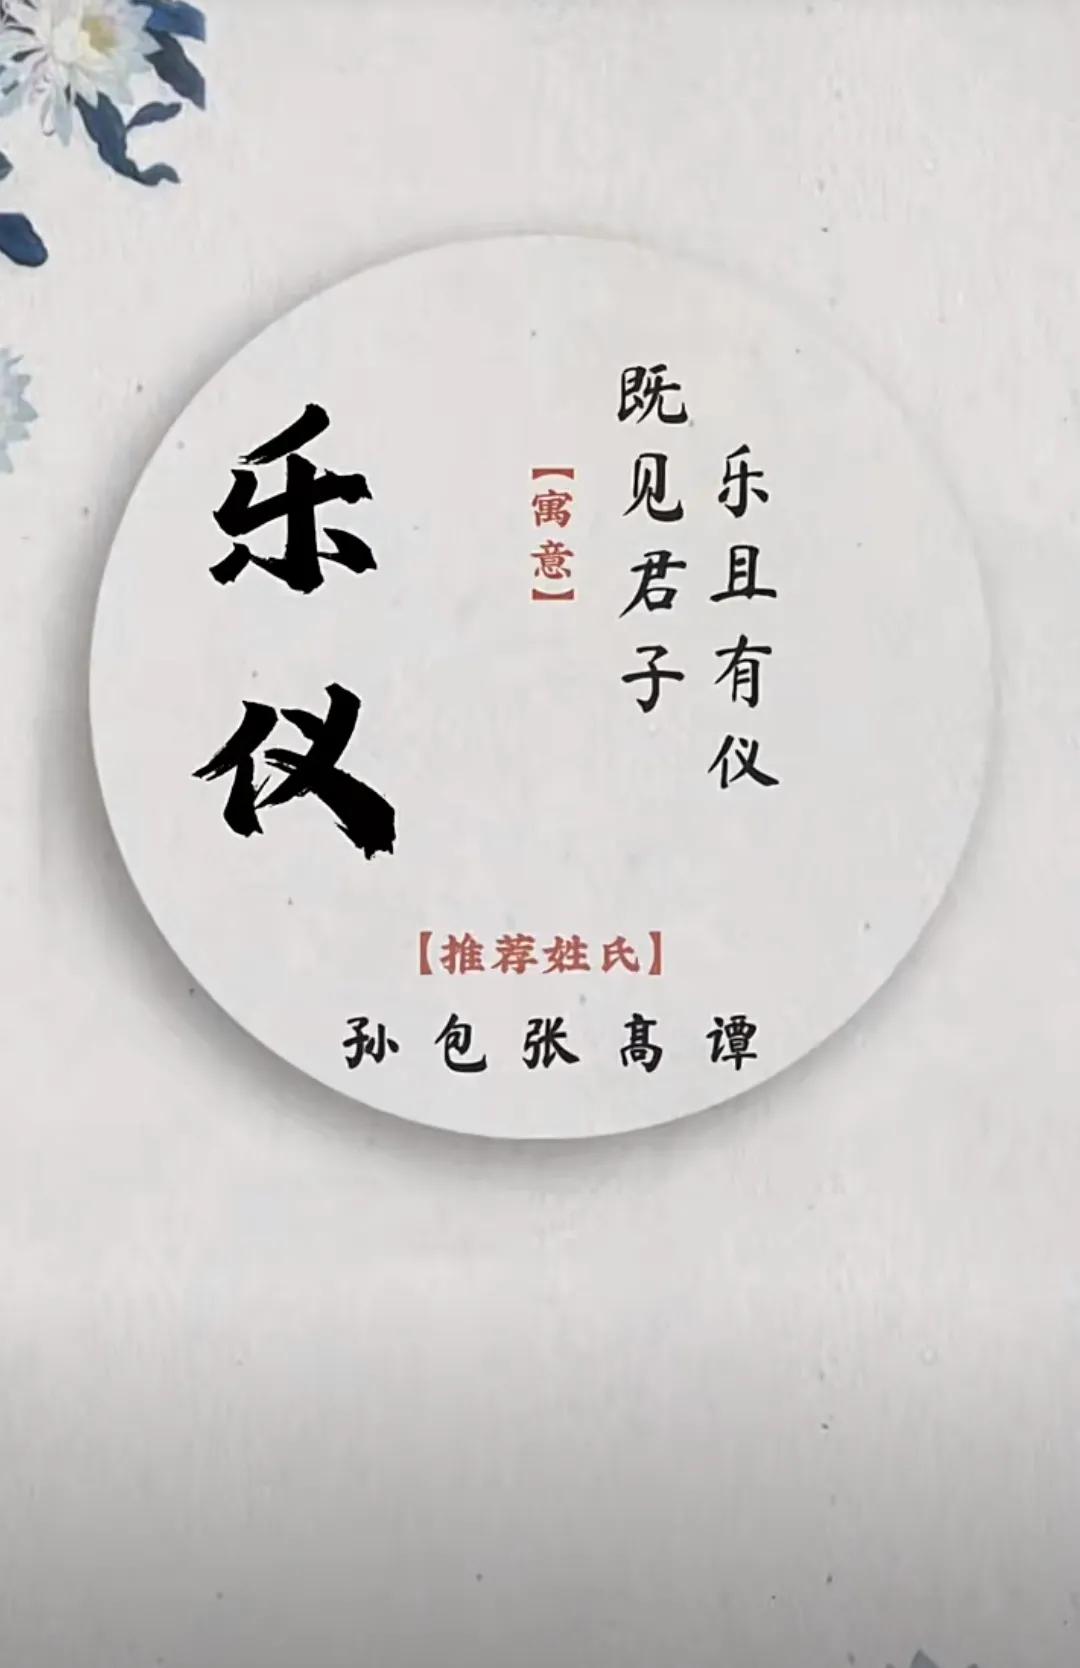 乐仪
【寓意】
既见君子
乐且有仪
【推荐姓氏】
孙 包 张 高 谭